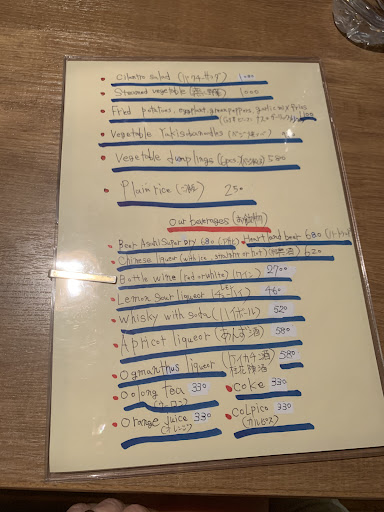 Cilantro salad (パクチーサラダ) 1000
Steamed vegetable 1000
Fried potatoes, eggplant, green peppers, garlic mix fries
Vegetable Yakisoba noodles
Vegetable dumplings 580
Plain rice 250
Our bearages (お飲物)
Beer Asahi Super Dry 680 Heartland beer 680
Chinese liquor (with ice, straight or hot) 620
Bottle wine (red or white) (ワイン) 2700
Lemon Sour liqueur 460
Whisky with soda (ハイボール) 520
Apricot liqueur (あんず酒) 580
Ogmanthus liqueur 桂花陳酒 580
Oolong tea 330 Coke 330
(ウーロン)
Orange juice 330 Colpico 330
(オレンジ) (カルピス)